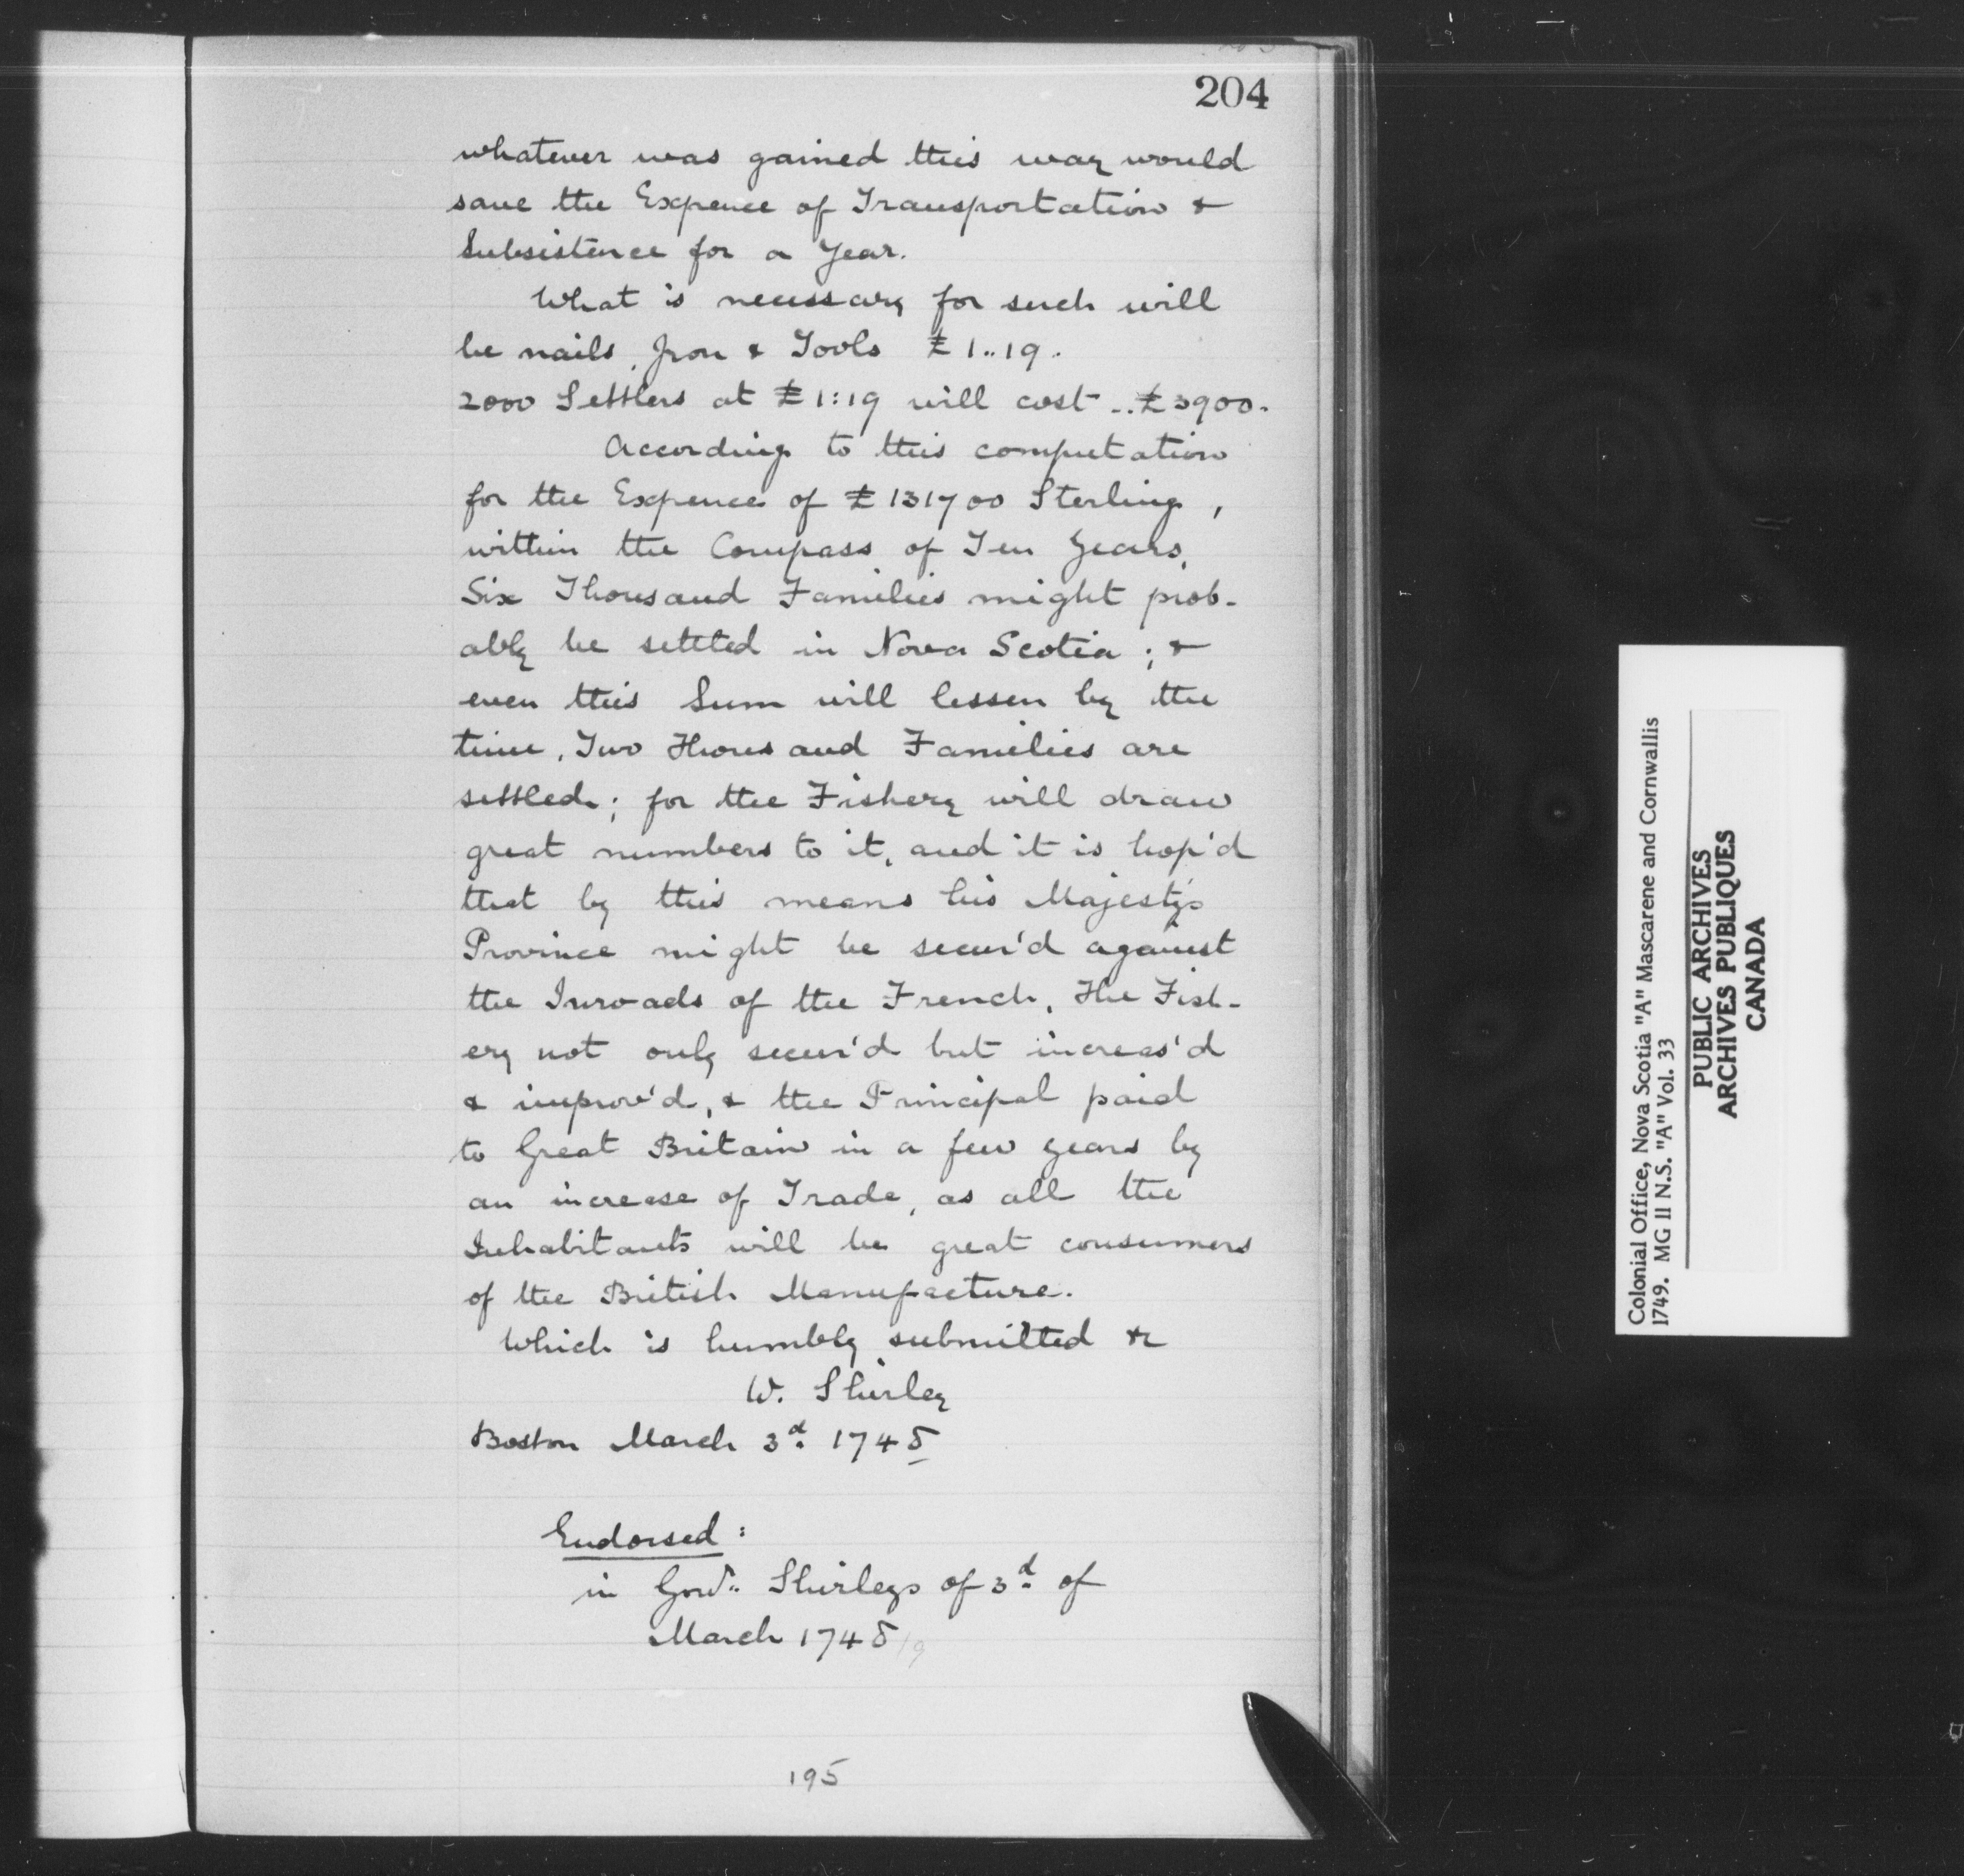 204
whatever was gained this way would
save the Expence of Transportation &
Subsistence for a Year.
What is necessary for such will
be nails, Iron & Tools £1..19.
2000 Settlers at £1:19 will cost .. £3900.
According to this computation
for the Expence of £131700 Sterling,
within the Compass of Ten Years,
Six Thousand Families might prob-
ably be settled in Nova Scotia; &
even this Sum will lessen by the
time, Two Thousand Families are
settled; for the Fishery will draw
great numbers to it, and it is hop'd
that by this means his Majesty's
Province might be secur'd against
the Inroads of the French, The Fish-
ery not only secur'd but increas'd
& improv'd, & the Principal paid
to Great Britain in a few years by
an increase of Trade, as all the
Inhabitants will be great consumers
of the British Manufacture.
Which is humbly submitted &c
W. Shirley
Boston March 3d. 1748
Endorsed:
in Govr.. Shirleys of 3d. of
March 1748/9
195
Colonial Office, Nova Scotia "A" Mascarene and Cornwallis
1749. MG 11 N.S. "A" Vol. 33
PUBLIC ARCHIVES
ARCHIVES PUBLIQUES
CANADA